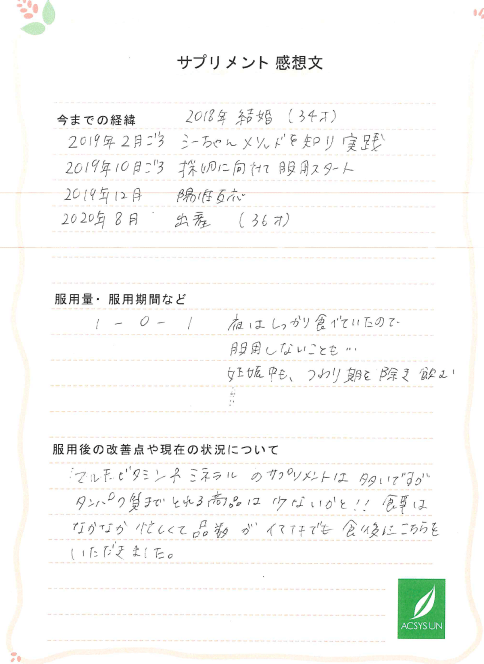 サプリメント 感想文
今までの経緯 2018年 結婚 (34才)
2019年 2月ごろ シーちゃんメソッドを知り 実践
2019年10月ごろ 採卵に向けて 服用スタート
2019年12月 陽性反応
2020年 8月 出産 (36才)
服用量・服用期間など
1 - 0 - 1 夜はしっかり食べていたので
服用しないことも…
妊娠中も、つわり期を除き 飲む
服用後の改善点や現在の状況について
マルチビタミンやミネラル のサプリメントは 多いですが
タンパク質まで とれる商品は 少ないかと!! 食事は
なかなか 忙しくて 品数 が イマイチでも 食後に こちらを
いただきました。
ACSYSUN